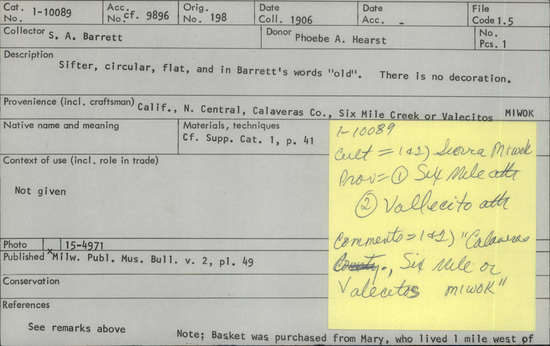 Cat. No. 1-10089 Acc. No. cf. 9896 Orig. No. 198 Date Coll. 1906 Date Acc. - File Code 1.5
Collector S. A. Barrett Donor Phoebe A. Hearst No. Pcs. 1
Description
Sifter, circular, flat, and in Barrett's words "old". There is no decoration.
Provenience (incl. craftsman) Calif., N. Central, Calaveras Co., Six Mile Creek or Valecitos MIWOK
Native name and meaning Materials, techniques
Cf. Supp. Cat. 1, p. 41
Context of use (incl. role in trade)
Not given
Photo 15-4971
Published Milw. Publ. Mus. Bull. v. 2, pl. 49
Conservation
References
See remarks above Note; Basket was purchased from Mary, who lived 1 mile west of
1-10089
Cult = 1 & 2) Sierra Miwok
Prov = ① Six Mile attr
② Vallecito attr
Comments = 1 & 2) "Calaveras
County., Six Mile or
Valecitos MIWOK"